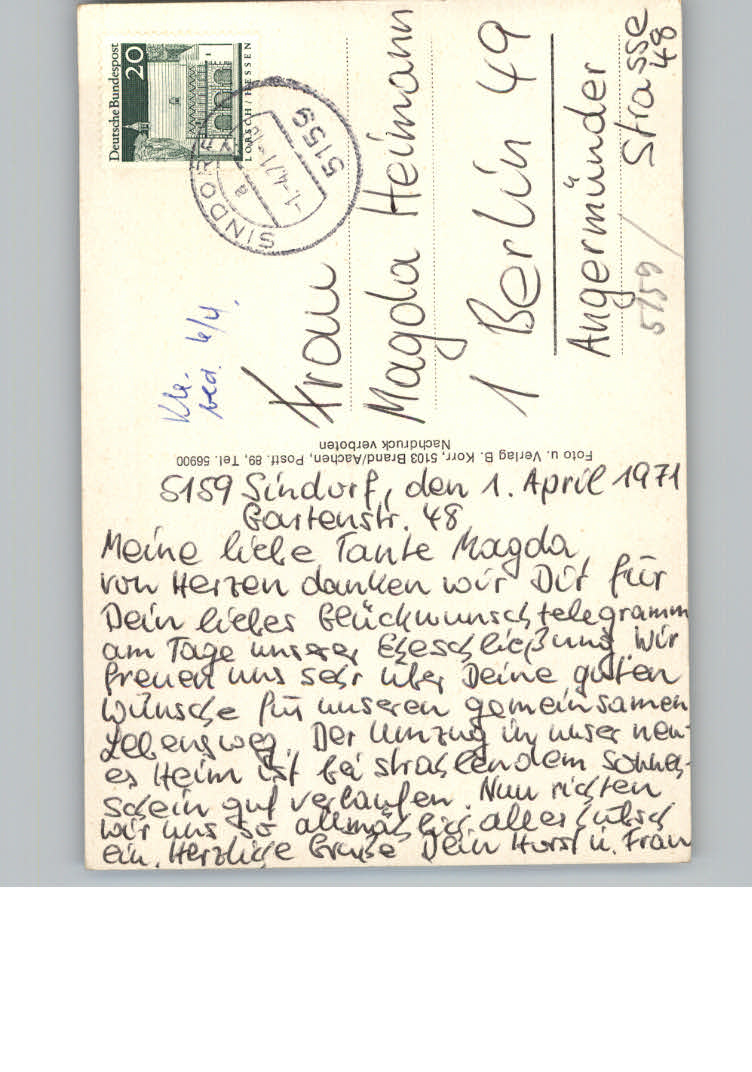 Deutsche Bundespost
20
LORSCH / HESSEN
SINDORF
a
-1.-4.71-18
5159
Kte.
bed. 6/4.
Frau
Magda Heimann
1 Berlin 49
Angermünder
Strasse
48
5159/
Foto u. Verlag B. Korr, 5103 Brand/Aachen, Postf. 89, Tel. 56900
Nachdruck verboten
5159 Sindorf, den 1. April 1971
Gartenstr. 48
Meine liebe Tante Magda,
von Herzen danken wir Dir für
Dein liebes Glückwunschtelegramm
am Tage unserer Eheschließung. Wir
freuen uns sehr über Deine guten
Wünsche für unseren gemeinsamen
Lebensweg. Der Umzug in unser neu-
es Heim ist bei strahlendem Sonnen-
schein gut verlaufen. Nun richten
wir uns so allmählich alles hübsch
ein. Herzliche Grüße Dein Horst u. Frau